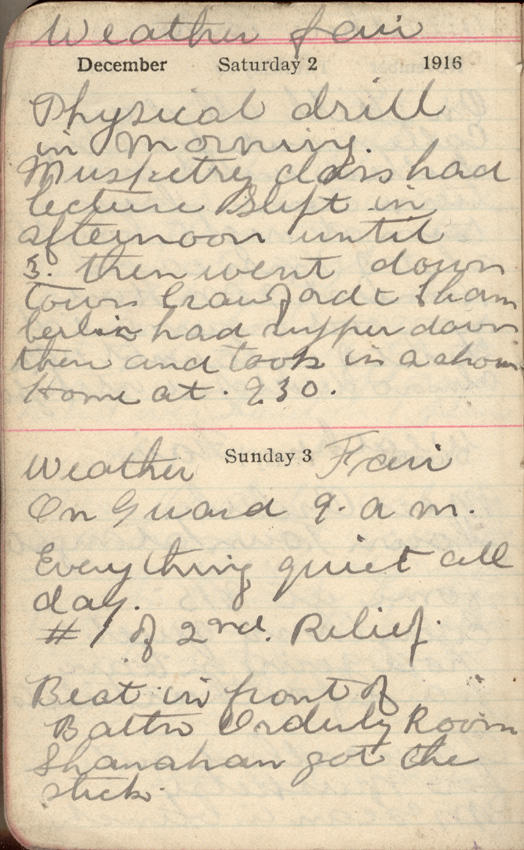 Weather fair
December Saturday 2 1916
Physical drill
in morning.
Musketry class had
lecture Slept in
afternoon until
5. then went down
town Crawford & Cham
berlin had supper down
then and took in a show
Home at. 9.30.
Weather Sunday 3 Fair
On Guard 9. a m.
Everything quiet all
day.
#1 of 2nd. Relief.
Beat in front of
Battn Orderly Room
Shanahan got the
stick.